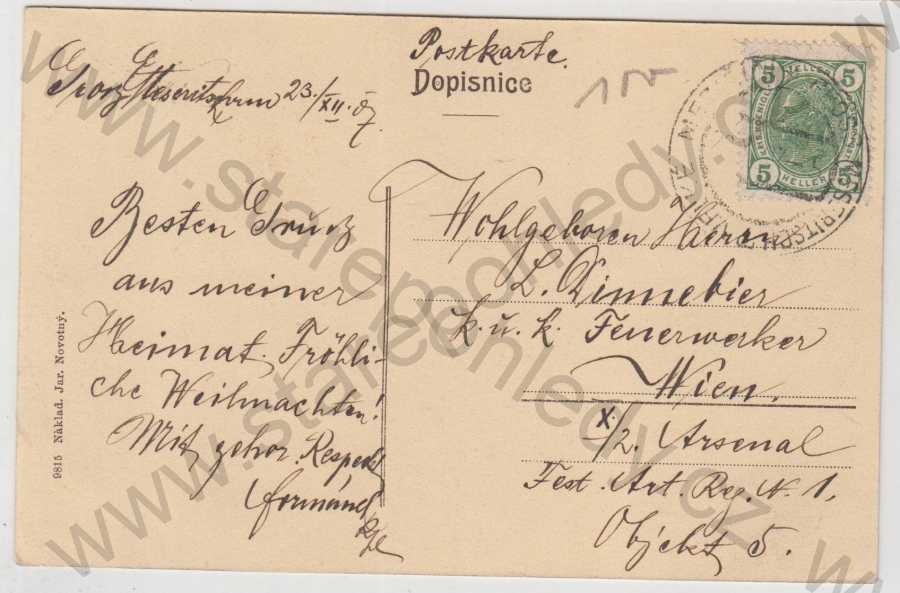 Postkarte.
Dopisnice
Gross Meseritsch am 23./XII. 07.
Besten Gruß
aus meiner
Heimat. Fröhli-
che Weihnachten!
Mit gehor. Respekt
Wohlgeboren Herrn
L. Dinnebier
k. u. k. Feuerwerker
Wien.
X./2. Arsenal
Fest. Art. Reg. N. 1.
Objekt 5.
9815 Náklad. Jar. Novotný.
5 HELLER 5
5 HELLER 5
www.stare-pohledy.cz